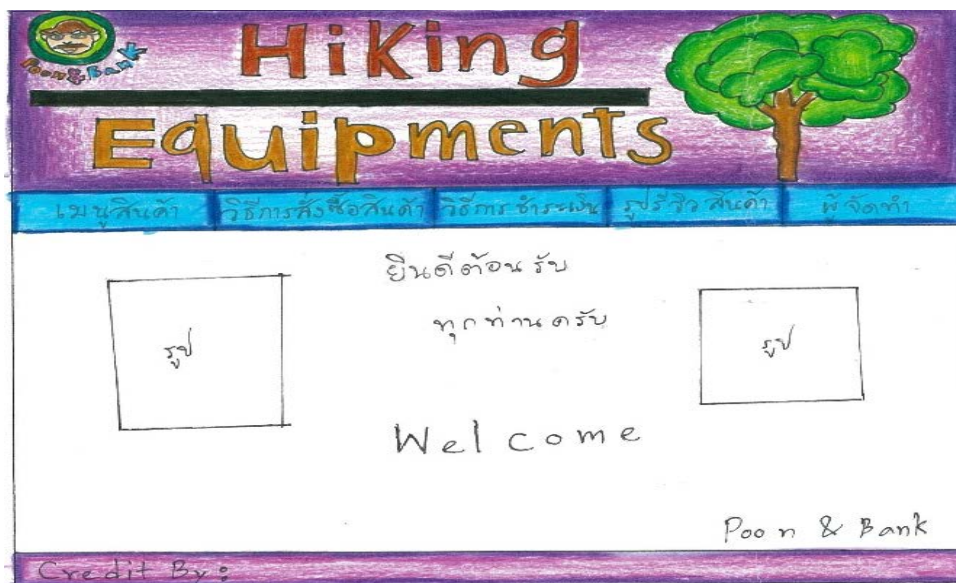 Poon & Bank
Hiking
Equipments
เมนูสินค้า วิธีการสั่งซื้อสินค้า วิธีการชำระเงิน รูปรีวิวสินค้า ผู้จัดทำ
ยินดีต้อนรับ
ทุกท่านครับ
รูป รูป
Welcome
Poon & Bank
Credit By: